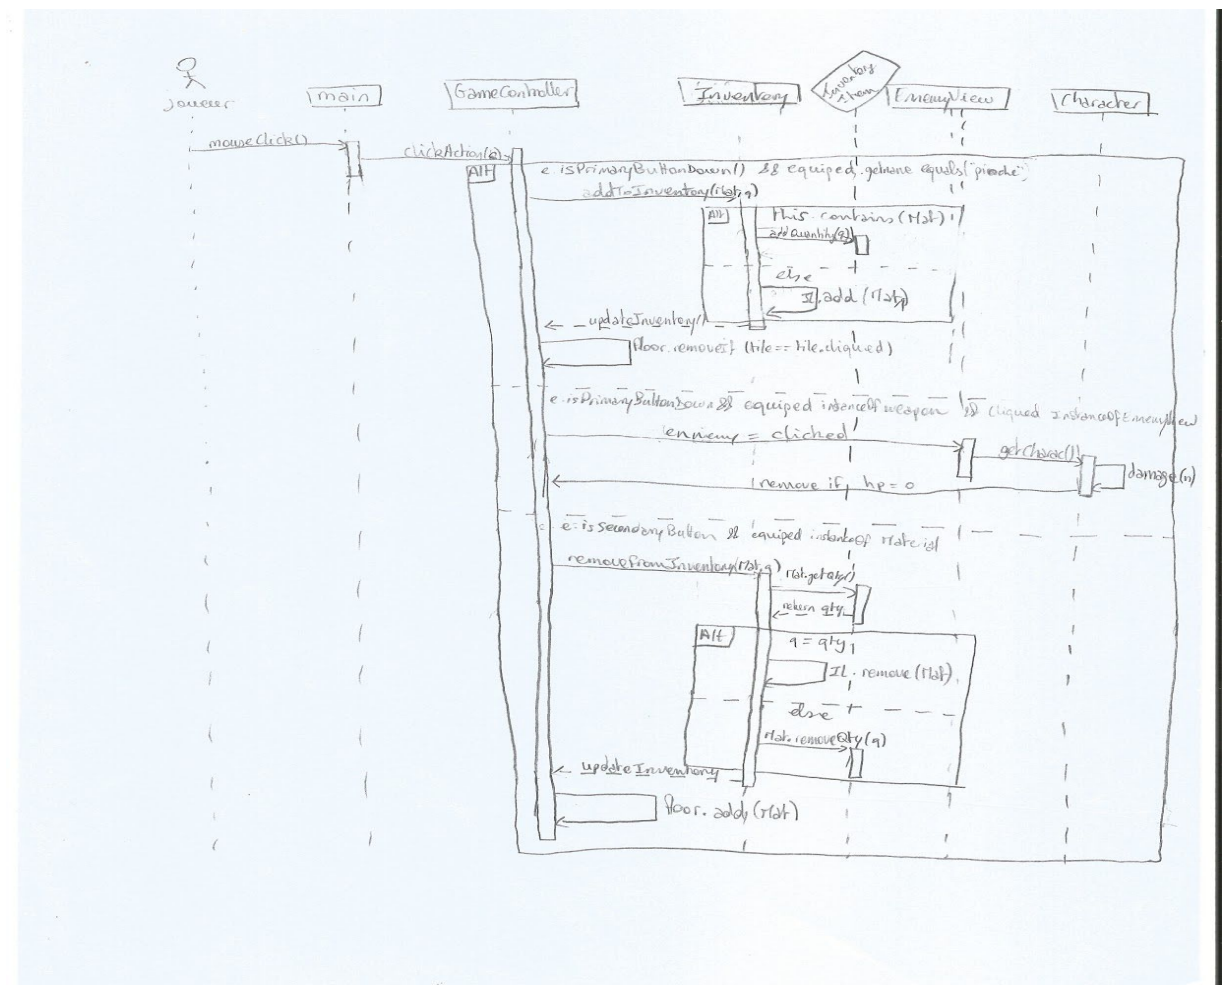 joueur
main
GameController
Inventory
Inventory
Item
EnemyView
Character
mouseClick()
clickAction(e)
Alt
e.isPrimaryButtonDown() && equiped.getname equals("pioche")
addToInventory(Mat,q)
Alt
this.contains(Mat)
addQuantity(q)
else
IL.add(Mat)
updateInventory()
floor.removeif (tile == tile.cliqued)
e.isPrimaryButtonDown && equiped instanceOf weapon && cliqued instanceOf EnemyView
ennemy = clicked
getCharac()
damage(n)
remove if hp = 0
e.isSecondaryButton && equiped instanceof Material
removeFromInventory(Mat,q)
Mat.getQty()
return qty
Alt
q = qty
IL.remove(Mat)
else
Mat.removeQty(q)
updateInventory
floor.add(Mat)